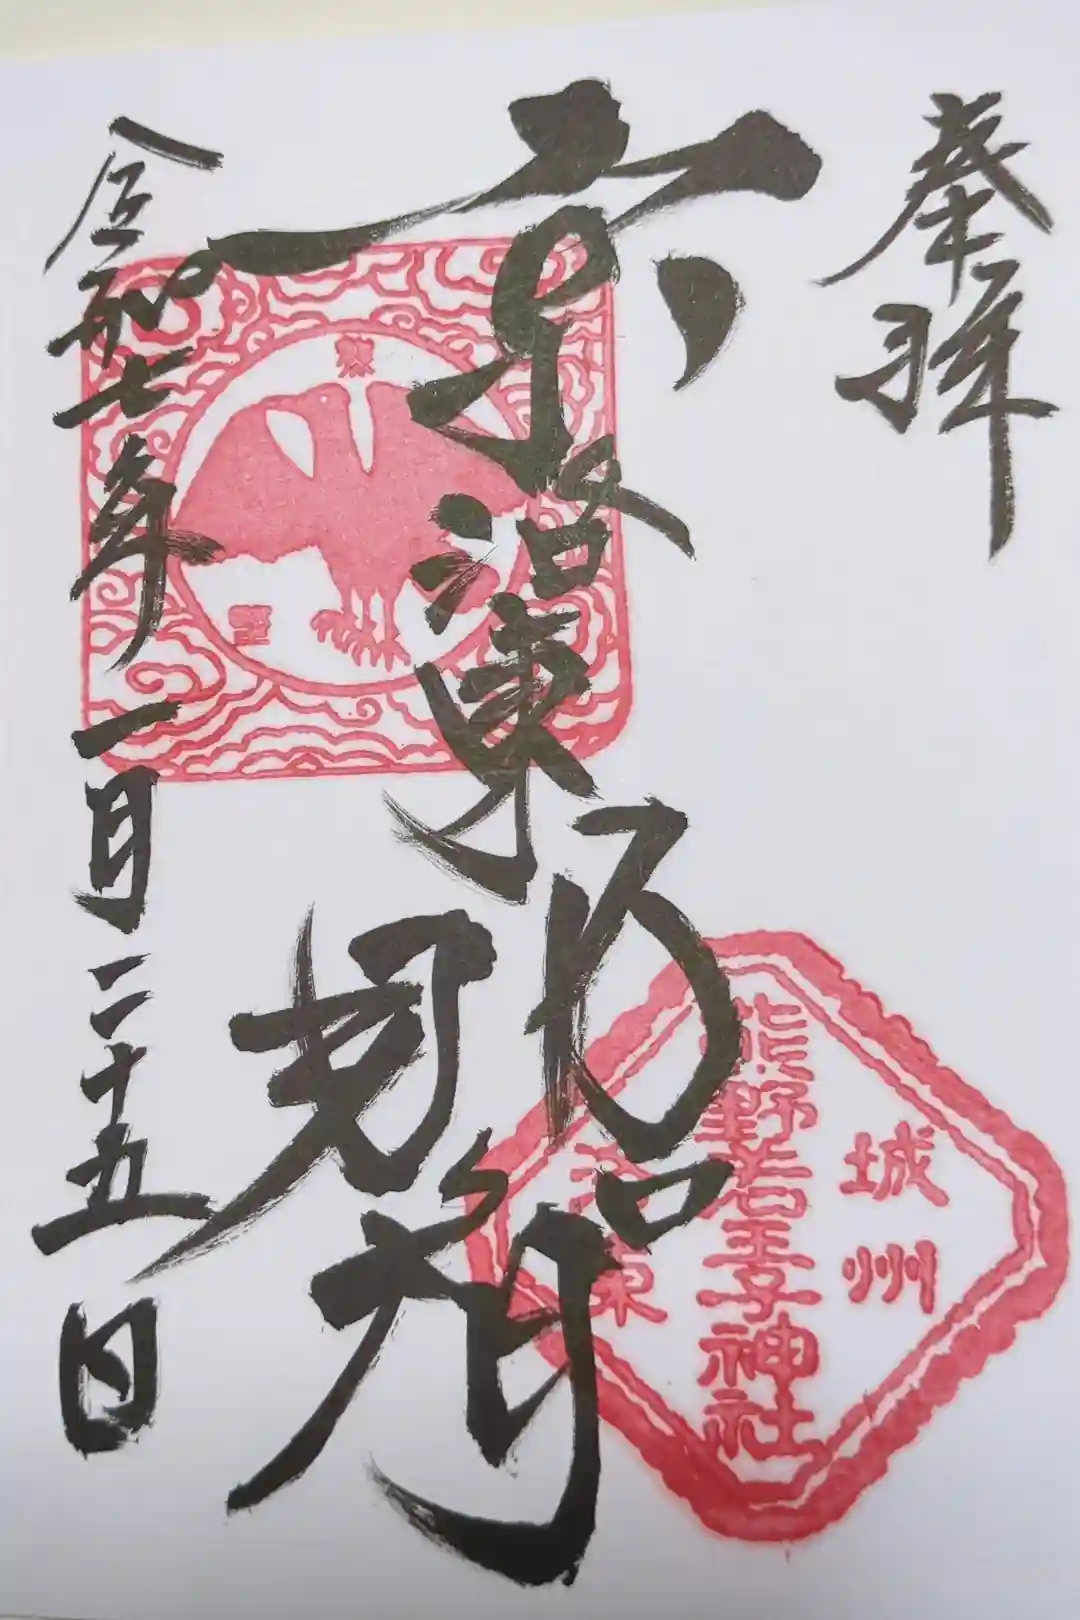 奉拝
京洛東那智
令和七年一月二十五日
城州
熊野若王子神社
洛東